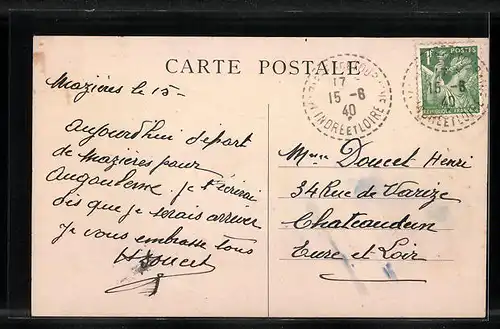 CARTE POSTALE
Mazières le 15-
Aujourd'hui départ
de Mazières pour
Angoulême. je t'écrirai
dès que je serais arriver
Je vous embrasse tous
HDoucet
17
15-6
40
INDRE ET LOIRE
1F
POSTES
15-6
40
INDRE ET LOIRE
Mme Doucet Henri
34 Rue de Varize
Chateaudun
Eure et Loir